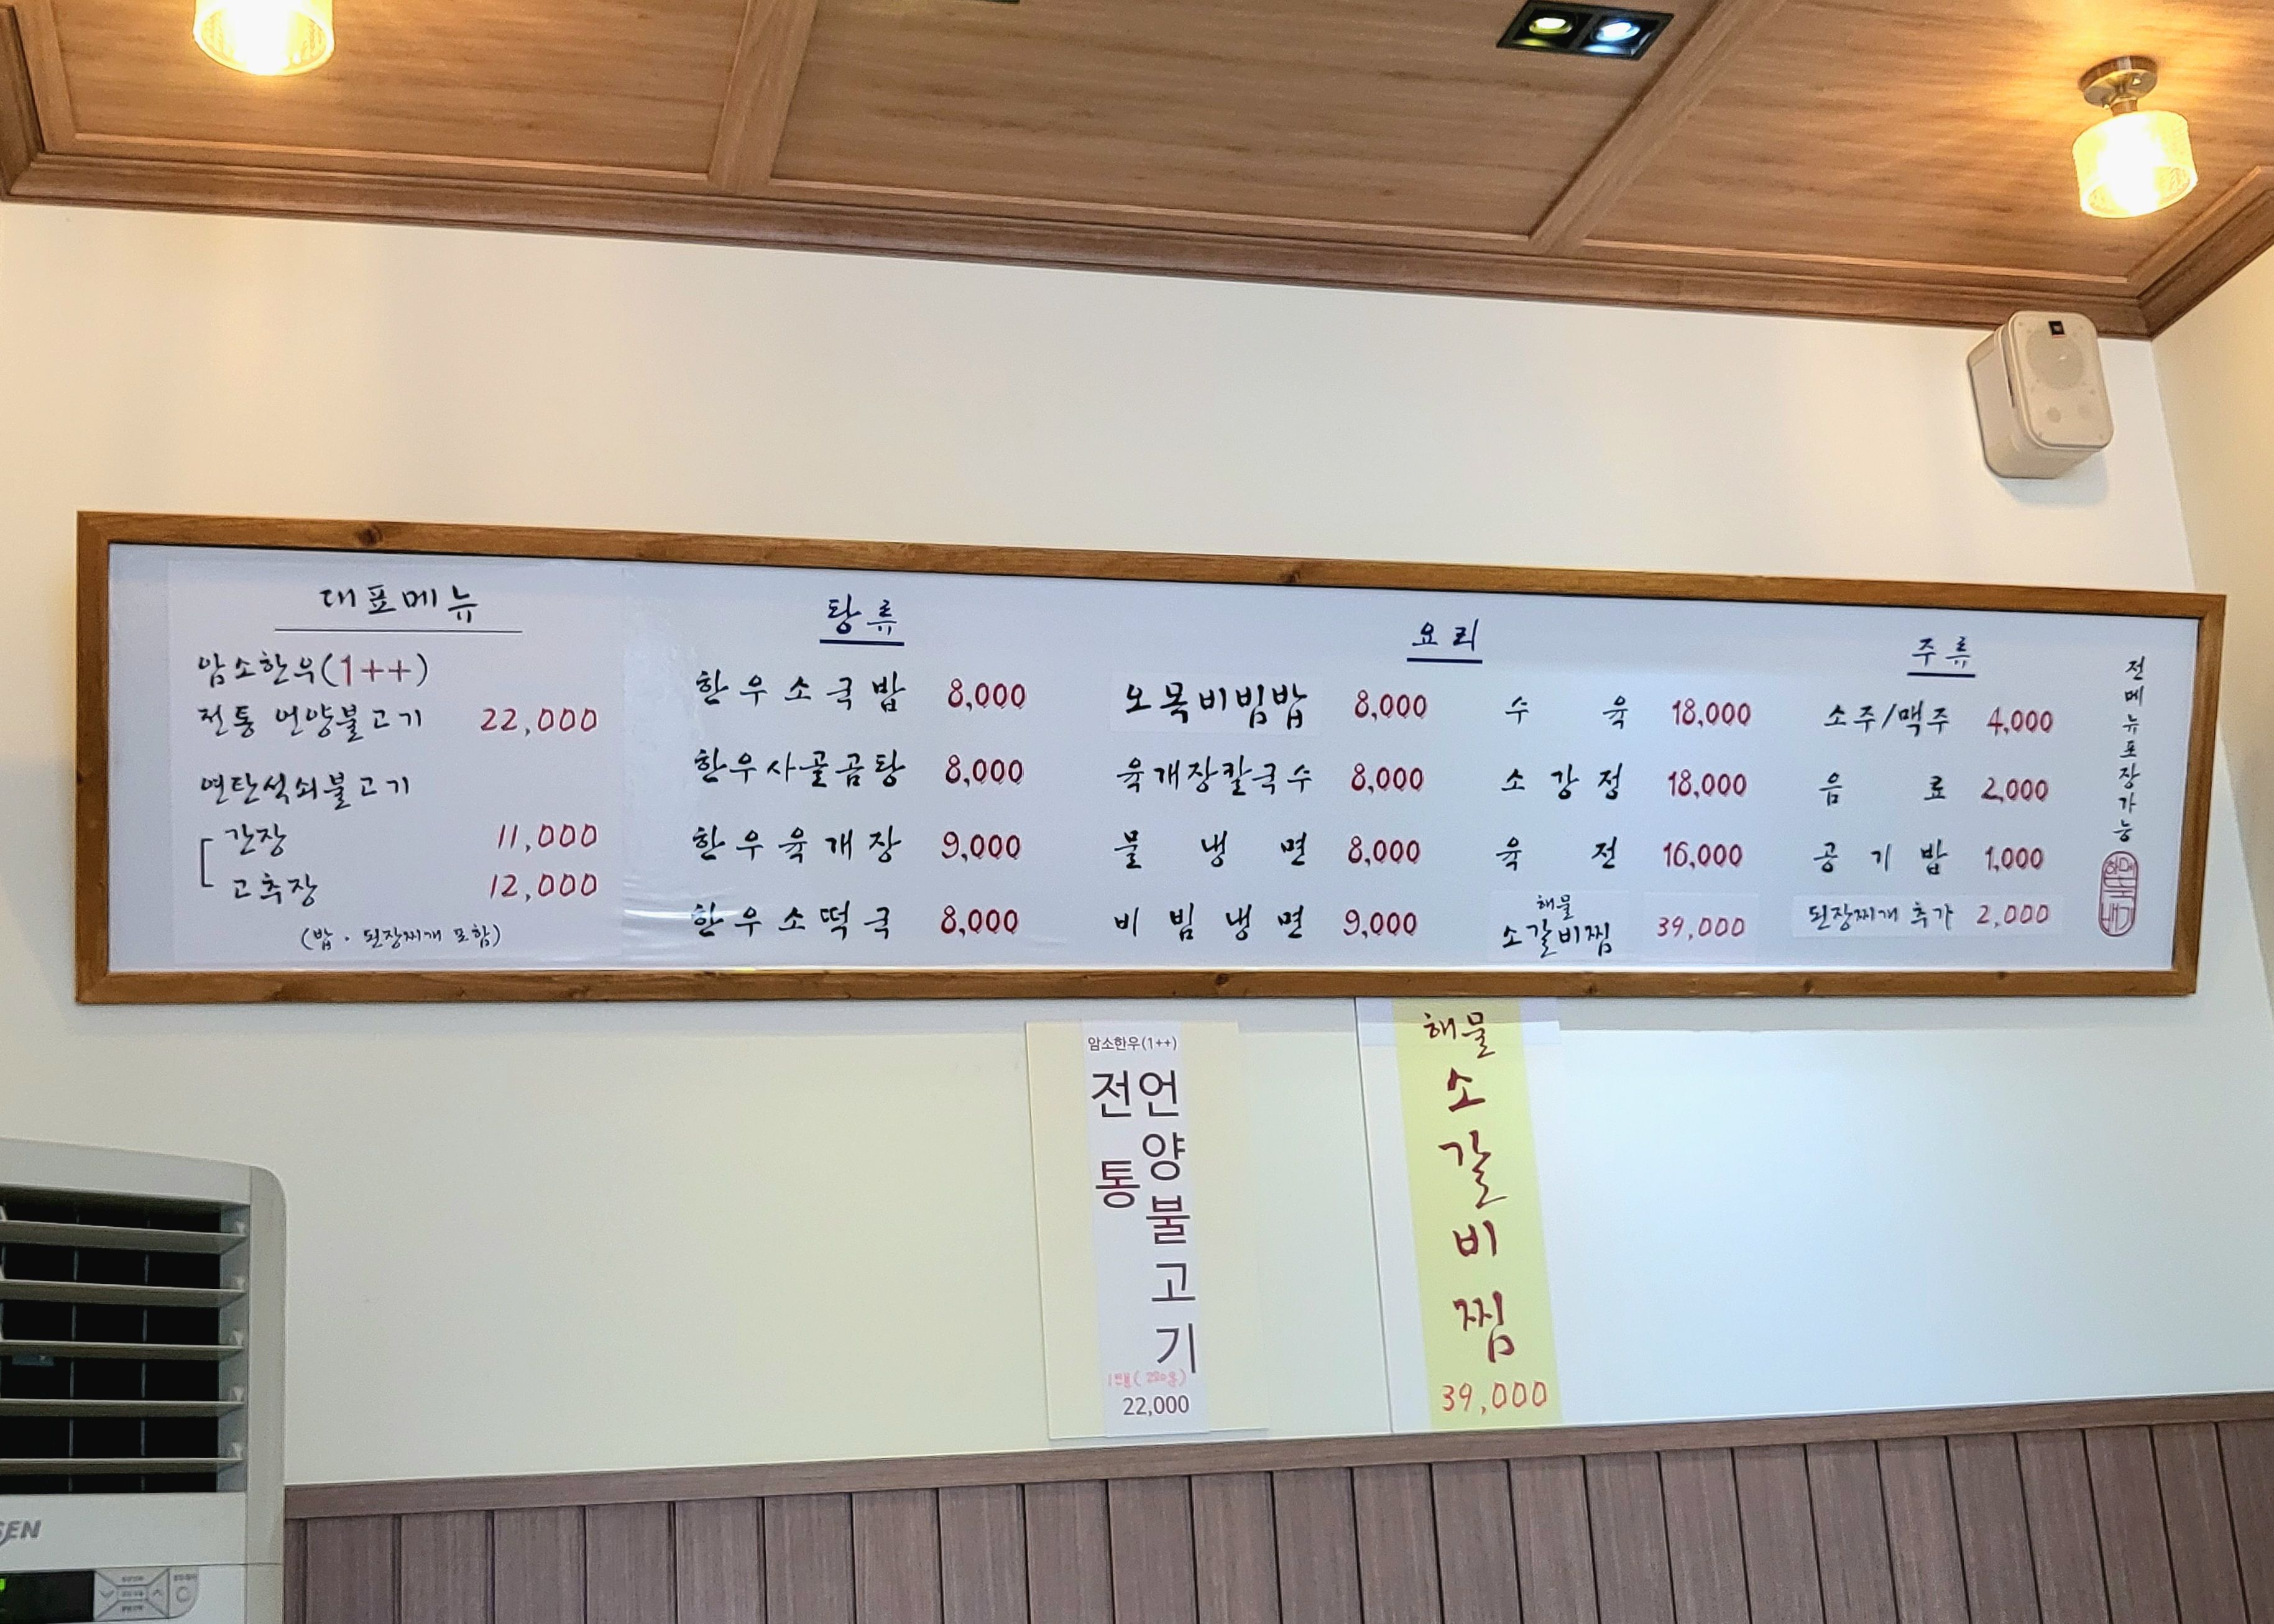 대표메뉴
암소한우(1++)
전통 언양불고기 22,000
연탄석쇠불고기
간장 11,000
고추장 12,000
(밥·된장찌개 포함)
탕류
한우소국밥 8,000
한우사골곰탕 8,000
한우육개장 9,000
한우소떡국 8,000
요리
오목비빔밥 8,000
육개장칼국수 8,000
물냉면 8,000
비빔냉면 9,000
수육 18,000
소강정 18,000
육전 16,000
해물
소갈비찜 39,000
주류
소주/맥주 4,000
음료 2,000
공기밥 1,000
된장찌개 추가 2,000
전메뉴포장가능
암소한우(1++)
전통
언양불고기
22,000
해물
소갈비찜
39,000
SEN